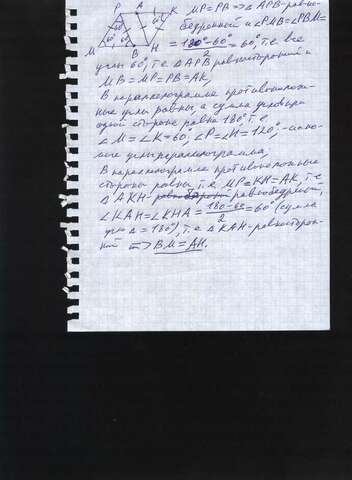 P A K MP=PB => ΔAPB-равно-
бедренный и ∠PMB=∠PBM=
M B H = 180°-60° / 2 = 60°, т.е все
углы 60°, т.е ΔAPB равносторонний и
MB=MP=PB=AK,
В параллелограмме противополож-
ные углы равны, а сумма углов при
одной стороне равна 180°, т.е
∠M=∠K=60°, ∠P=∠H=120°,-иско-
мые углы параллелограмма,
В параллелограмме противоположные
стороны равны, т.е MP=KH=AK, т.е
ΔAKH- равнобедренный,
∠KAH=∠KHA= 180-60 / 2 =60° (сумма
угл Δ=180°), т.е ΔKAH-равносторон-
ний => BM=AH.